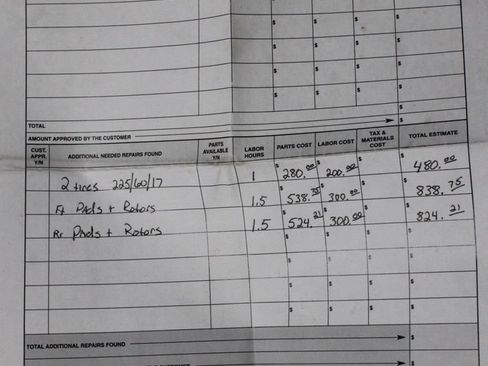 $ $ $ $
$ $ $ $
$ $ $ $
$ $ $ $
TOTAL $
$
AMOUNT APPROVED BY THE CUSTOMER
CUST. APPR. Y/N ADDITIONAL NEEDED REPAIRS FOUND PARTS AVAILABLE Y/N LABOR HOURS PARTS COST LABOR COST TAX & MATERIALS COST TOTAL ESTIMATE
2 tires 225/60/17 1 $280.00 $200.00 $ $480.00
Ft Pads + Rotors 1.5 $538.75 $300.00 $ $838.75
Rr Pads + Rotors 1.5 $524.21 $300.00 $ $824.21
$ $ $ $
$ $ $ $
$ $ $ $
$ $ $ $
TOTAL ADDITIONAL REPAIRS FOUND $
$